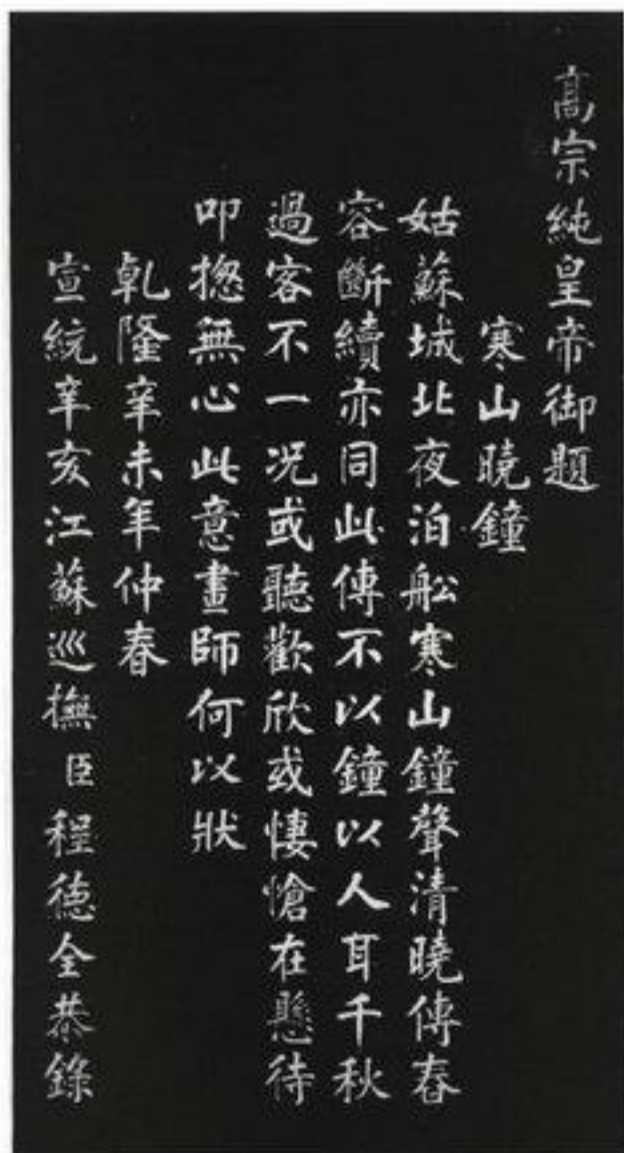 高宗純皇帝御題
寒山曉鐘
姑蘇城北夜泊舩寒山鐘聲清曉傳舂
容斷續亦同此傳不以鐘以人耳千秋
過客不一况或聽歡欣或悽愴在懸待
叩揔無心此意畫師何以狀
乹隆辛未年仲春
宣統辛亥江蘇巡撫臣程德全恭錄